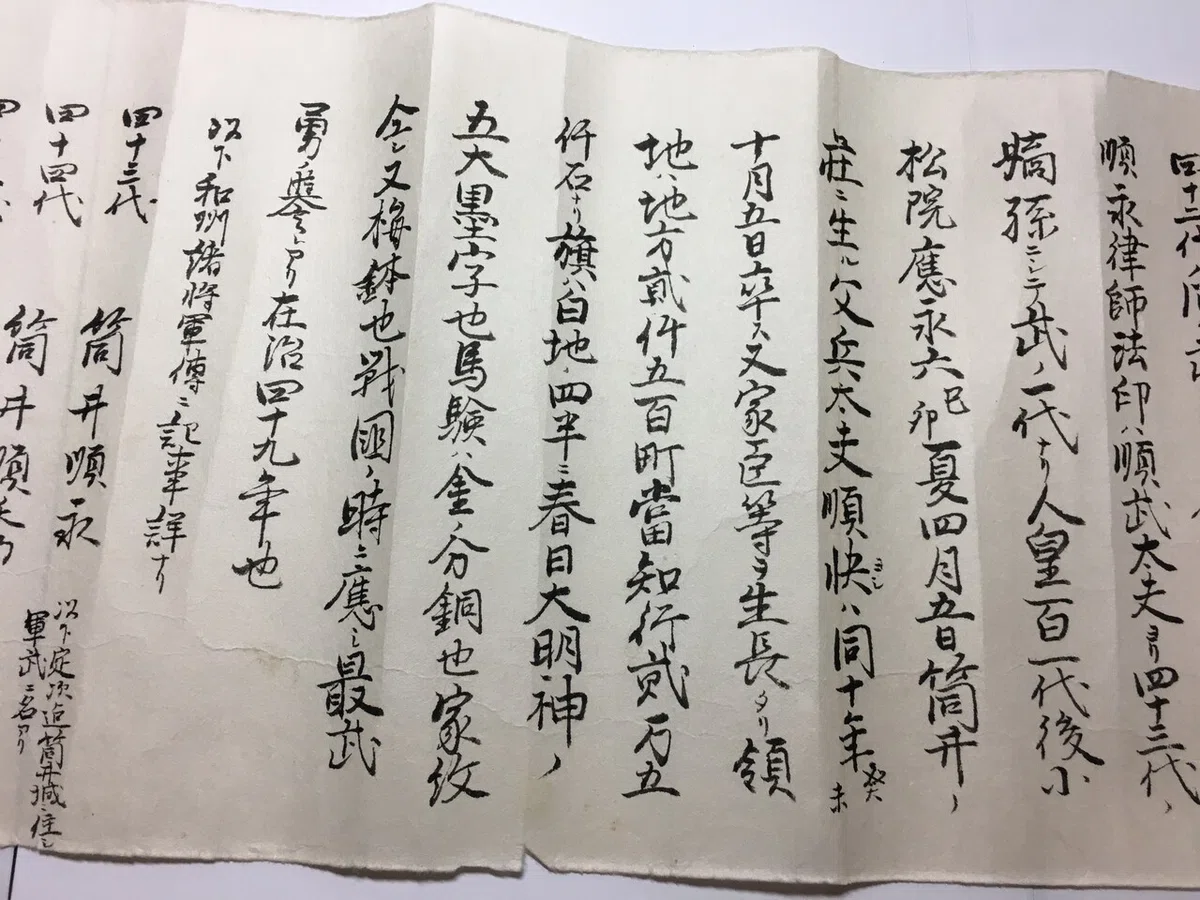 四十二代
順永律師法印ハ順武太夫ヨリ四十三代ノ
嫡孫ニシテ武ノ一代ナリ人皇百一代後小
松院應永六己卯夏四月五日筒井ノ
庄ニ生ル父兵太夫順快ヨシハ同十年癸未
十月五日卒ス又家臣等ヲ生長タリ領
地ハ地方貳仟五百町當知行貳万五
仟石ナリ旗ハ白地四半ニ春日大明神ノ
五大墨字也馬験ハ金ノ分銅也家紋
今シ又梅鉢也戦國ノ時ニ應シ最武
勇ノ譽アリ在治四十九年也
以下和州諸将軍傳ニ記事詳ナリ
四十三代 筒井順永
四十四代 筒井順
以下定次迠筒井城ニ住シ
軍武ニ名アリ